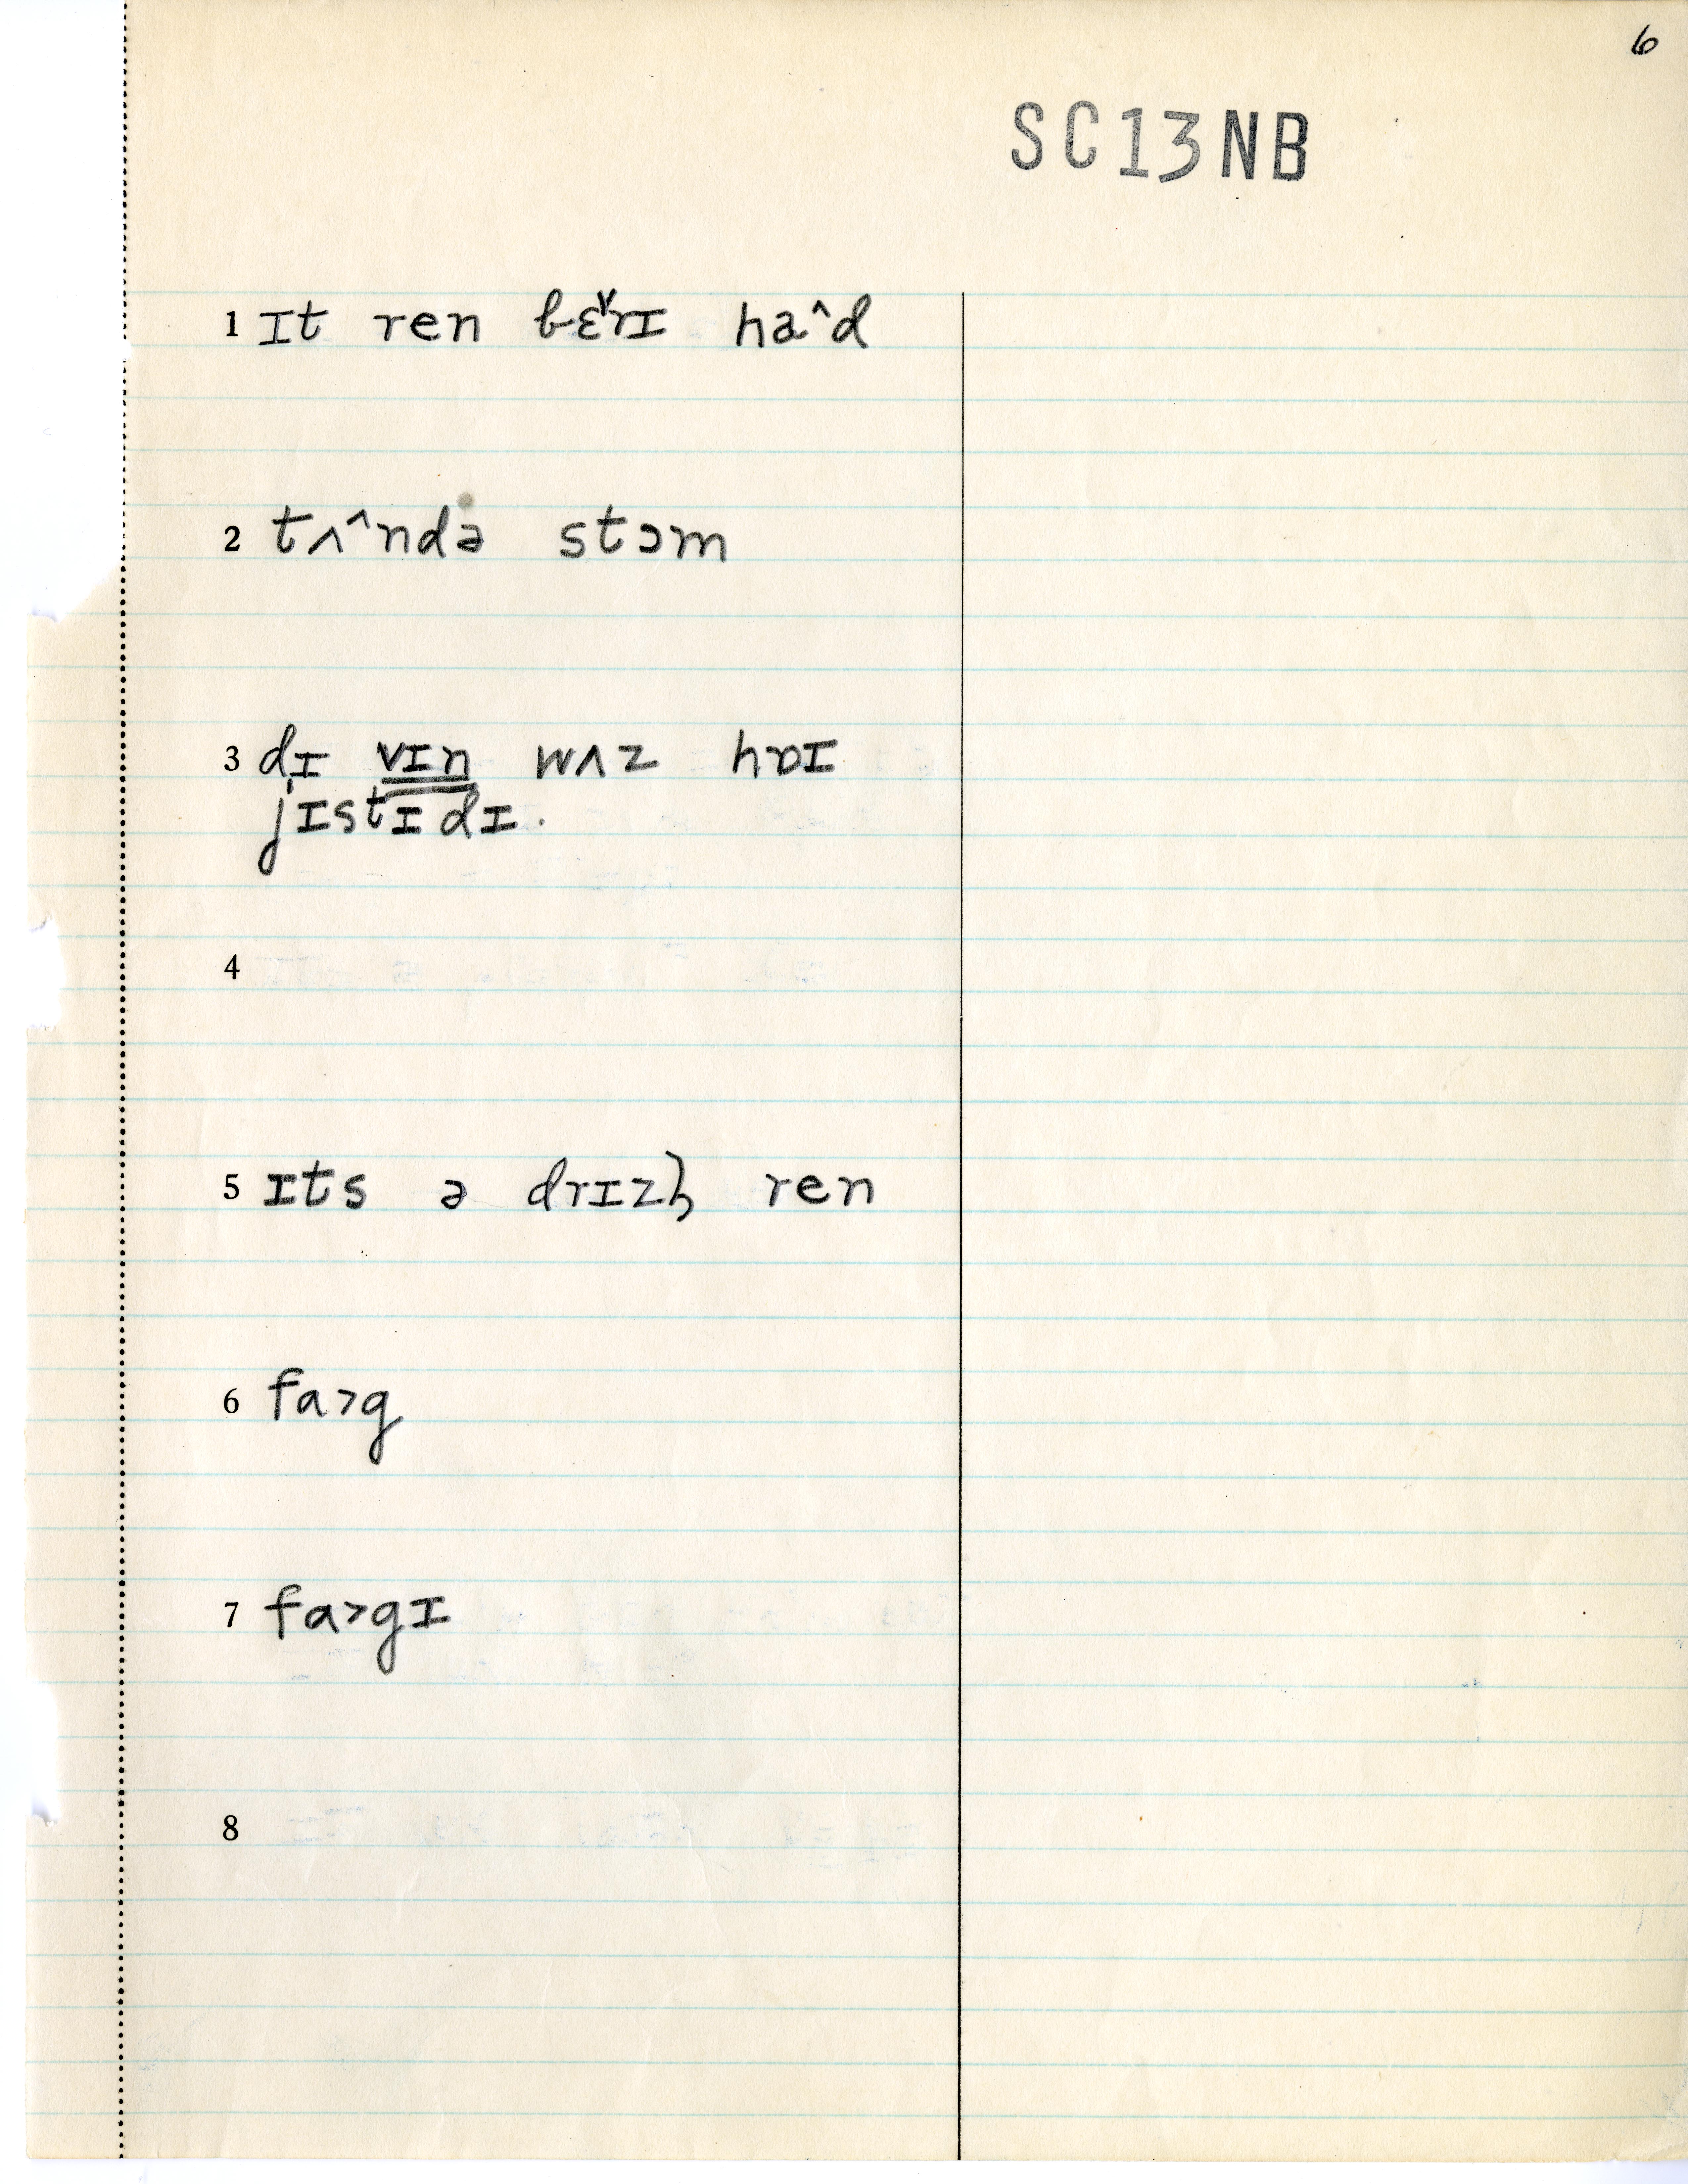 6
SC13NB
1 ɪt ren bɛ˅rɪ ha^d
2 tʌ^ndə stɔm
3 dɪ vɪn wʌz hɒɪ
jɪstɪdɪ.
4
5 ɪts ə drɪzlɪ ren
6 fa>g
7 fa>gɪ
8